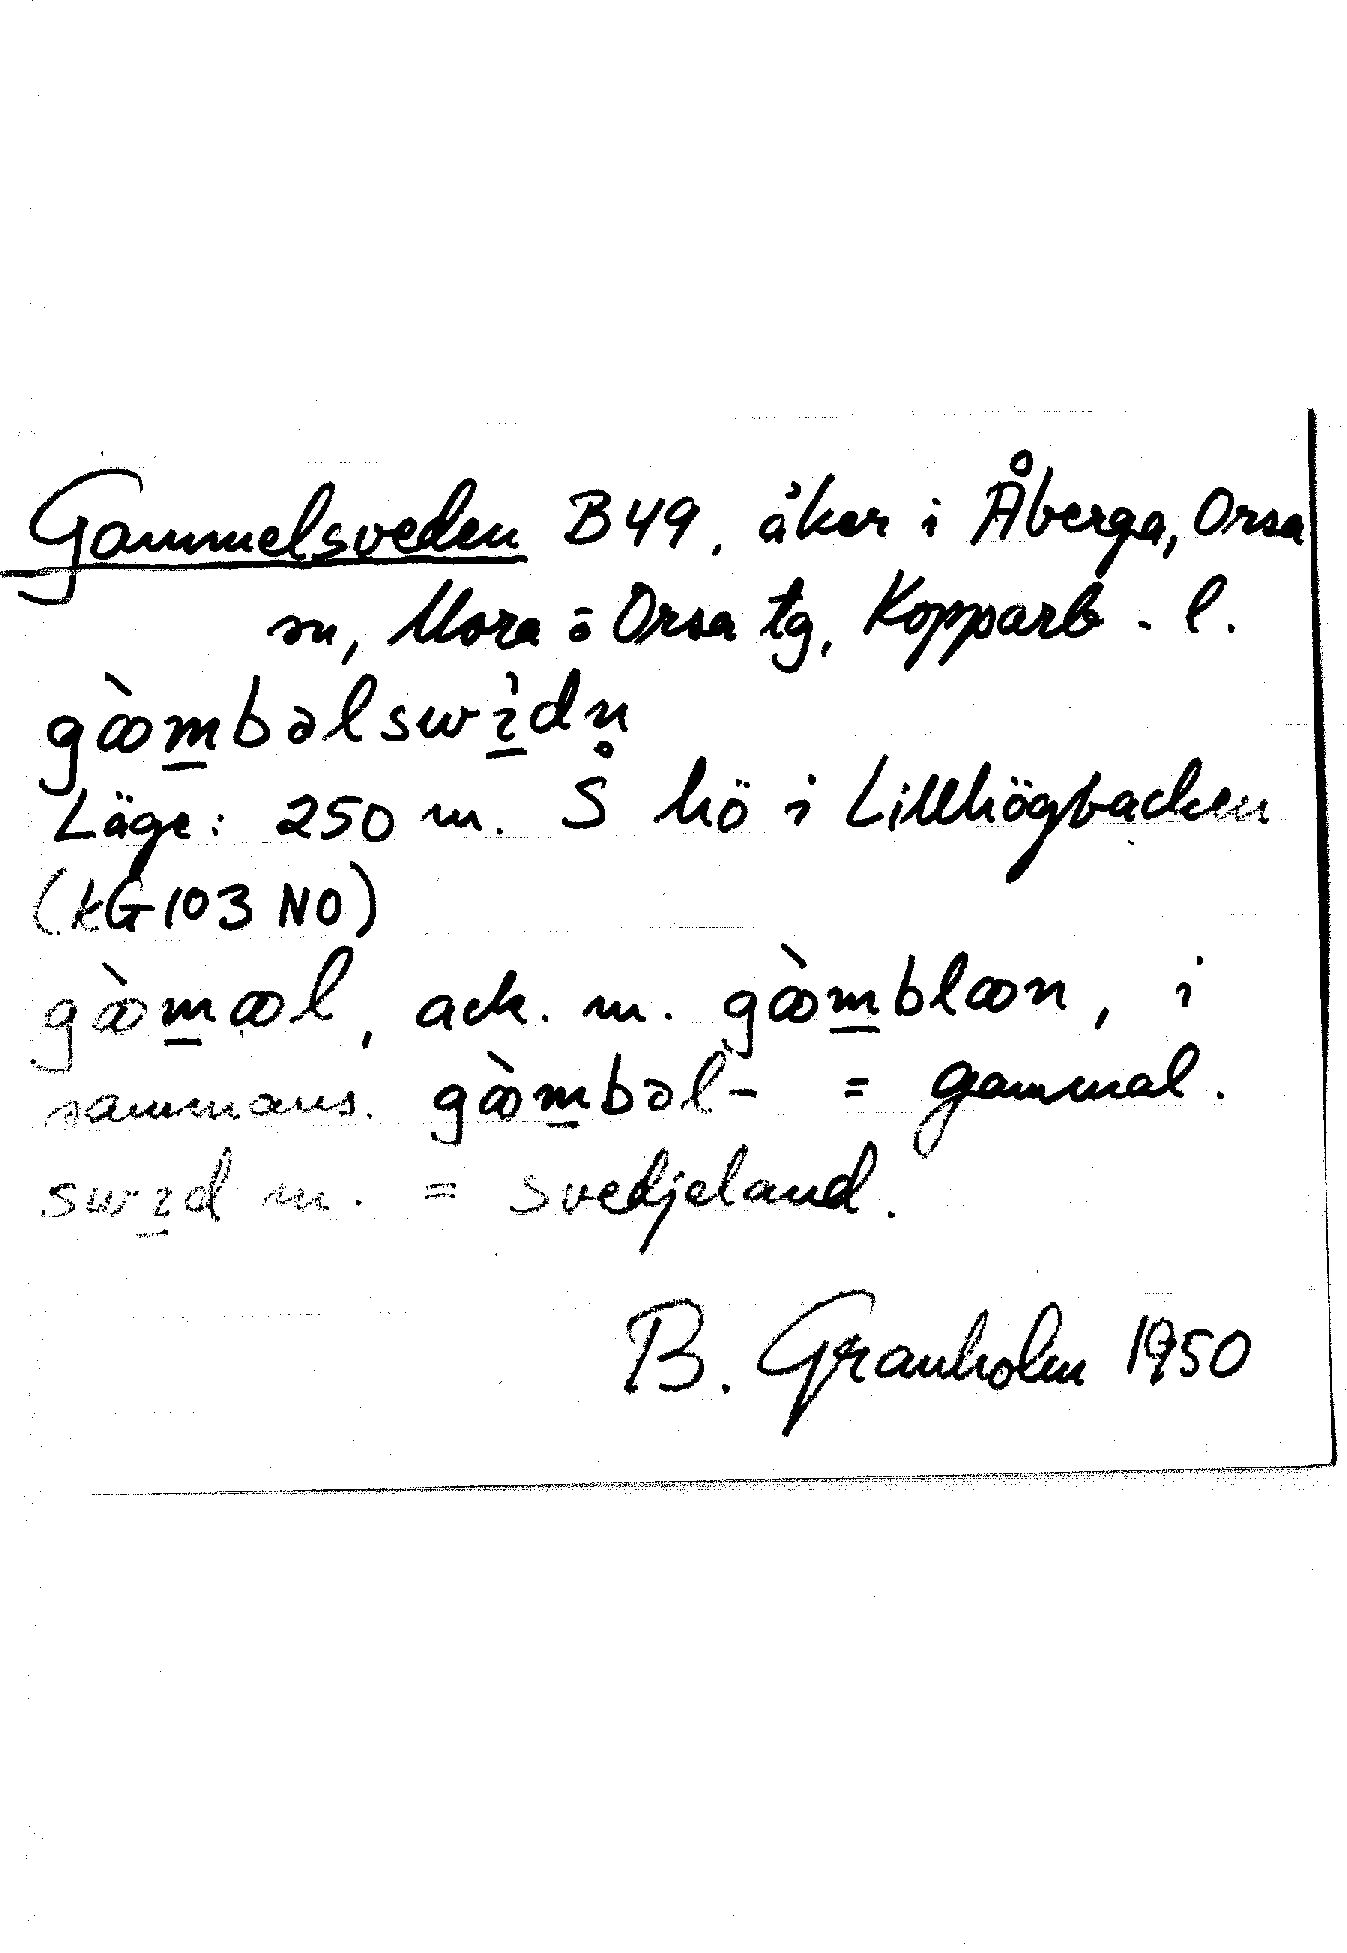 Gammelsveden B49, åker i Åberga, Orsa
sn, Mora o Orsa tg, Kopparb. l.
gòmbəlswìdn̥
Läge: 250 m. S hö i Lillhögbacken
(kG103 NO)
gòmol, ack. m. gòmblon, i
sammans. gòmbəl- = gammal.
swid m. = svedjeland.
B. Granholm 1950